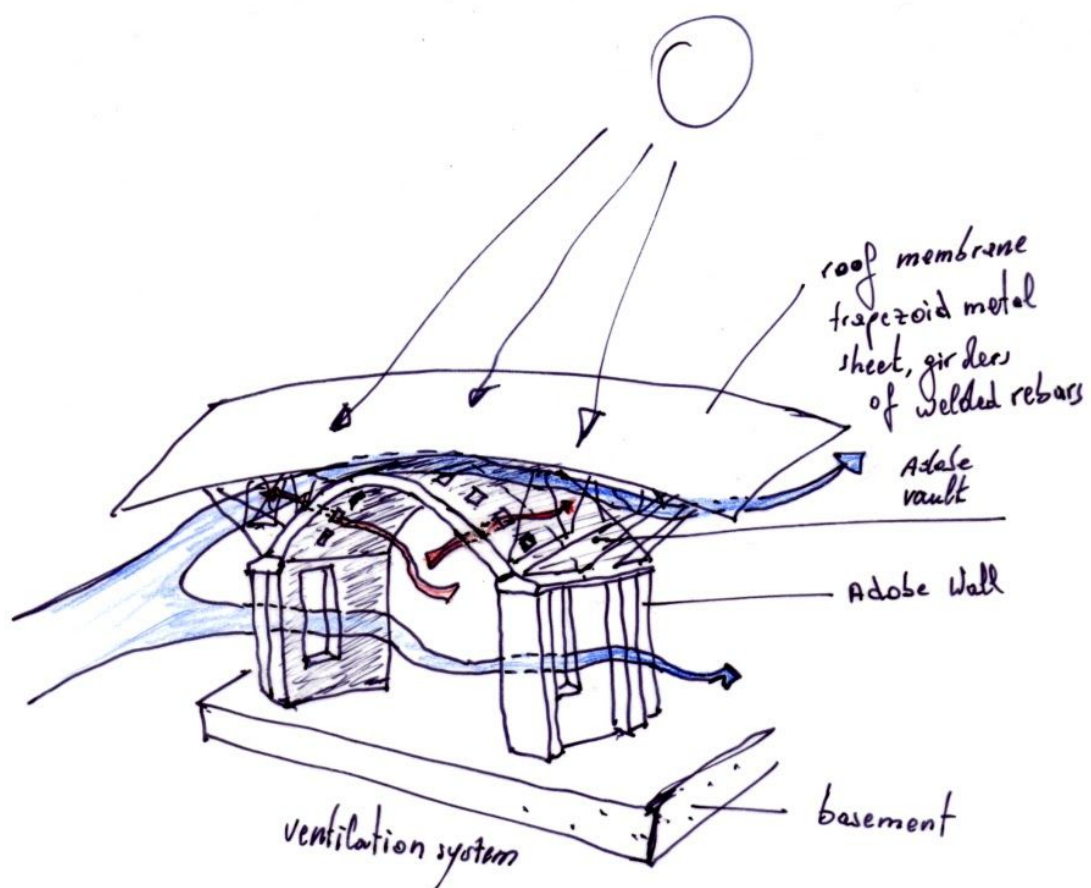 roof membrane
trapezoid metal
sheet, girders
of welded rebars
Adobe
vault
Adobe Wall
basement
ventilation system